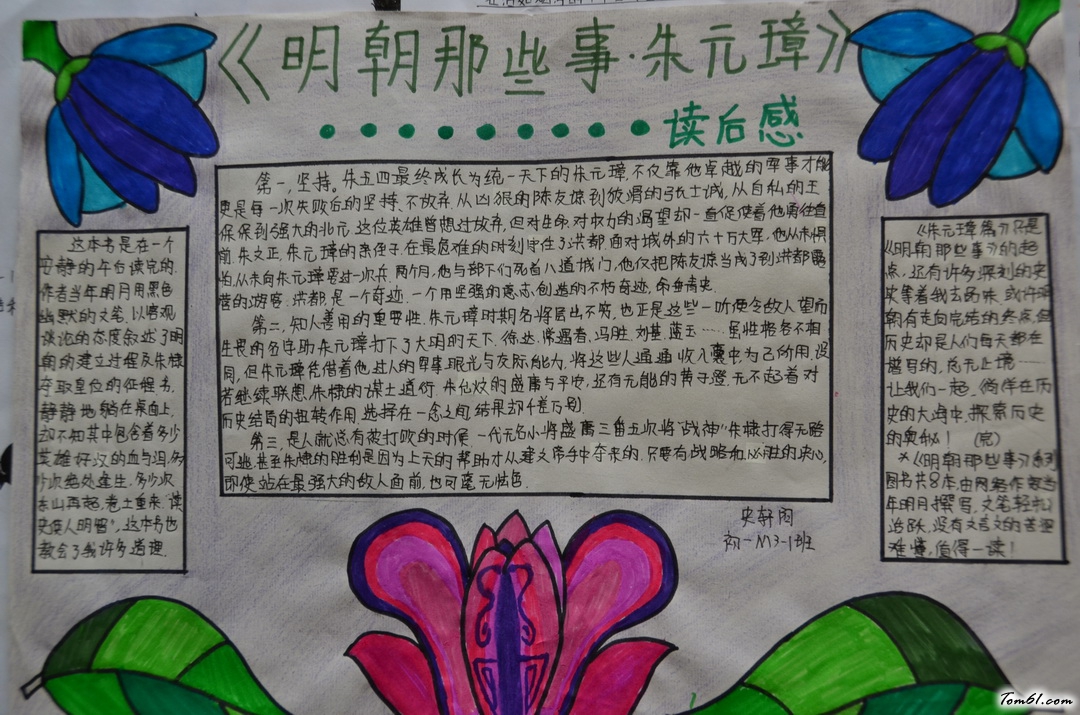 《明朝那些事·朱元璋》
读后感
这本书是在一个
安静的午后读完的.
作者当年明月用黑色
幽默的文笔,以客观
谈论的态度叙述了明
朝的建立过程及朱棣
夺取皇位的征程.书,
静静地躺在桌面上,
却不知其中包含着多少
英雄好汉的血与泪,多
少次绝处逢生,多少次
东山再起,卷土重来."读
史使人明智",这本书也
教会了我许多道理.
第一,坚持。朱五四最终成长为统一天下的朱元璋,不仅靠他卓越的军事才能
更是每一次失败后的坚持、不放弃.从凶狠的陈友谅到狡猾的张士诚,从自私的王
保保到强大的北元,这位英雄曾想过放弃,但对生命、对权力的渴望却一直促使着他勇往直
前.朱文正,朱元璋的亲侄子,在最危难的时刻守住了洪都,面对城外的六十万大军,他从未惧
怕,从未向朱元璋要过一次兵.两个月,他与部下们死者八道城门,他仅把陈友谅当成了到洪都露
营的游客.洪都,是一个奇迹,一个用坚强的意志,创造的不朽奇迹,命垂青史.
第二,知人善用的重要性.朱元璋时期名将层出不穷,也正是这些一听便令敌人望而
生畏的名字助朱元璋打下了大明的天下,徐达,常遇春,冯胜,刘基,蓝玉……虽性格各不相
同,但朱元璋凭借着他过人的军事眼光与交际能力,将这些人通通收入囊中为己所用,设
若继续联想,朱棣的谋士道衍,朱允炆的盛庸与平安,还有无能的黄子澄,无不起着对
历史结局的扭转作用.选择在一念之间,结果却千差万别.
第三,是人就总有被打败的时候.一代无名小将盛庸三番五次将"战神"朱棣打得无路
可逃,甚至朱棣的胜利是因为上天的帮助才从建文帝手中夺来的.只要有战略和必胜的决心,
即使站在最强大的敌人面前,也可毫无怯色.
史轩雨
初一M3-1班
《朱元璋篇》只是
《明朝那些事》的起
点,还有许多深刻的史
实等着我去品味,或许明
朝有走向完结的终点,但
历史却是人们每天都在
谱写的,总无止境……
让我们一起,徜徉在历
史的大海中,探索历史
的奥秘! (完)
*《明朝那些事》系列
图书共8本由网络作家当
年明月撰写,文笔轻松
活跃,没有文言文的苦涩
难懂,值得一读!
Tom61.com